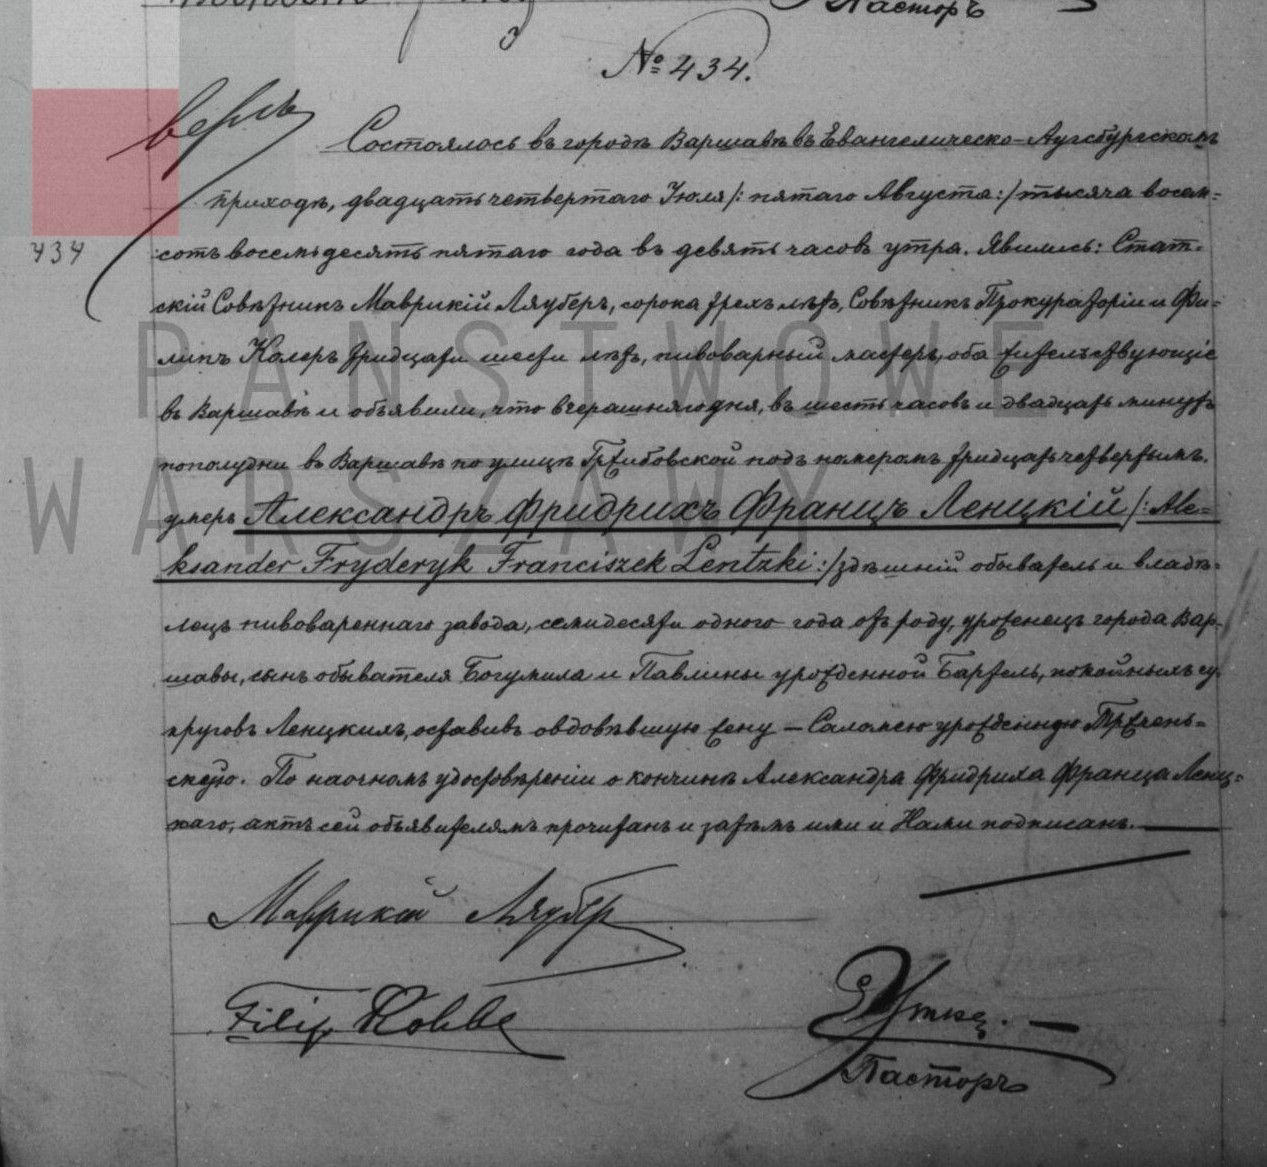 Пасторъ
№ 434.
Состоялось въ городѣ Варшавѣ въ Евангелическо-Аугсбургскомъ
434
приходѣ, двадцать четвертаго Іюля /: пятаго Августа :/ тысяча восем-
сотъ восемьдесятъ пятаго года въ девять часовъ утра. Явились: Стат-
скій Совѣтникъ Маврикій Ляуберъ, сорока трехъ лѣтъ, Совѣтникъ Прокураторіи и Фи-
липъ тридцати шести лѣтъ, пивоварный мастеръ, оба жительствующіе
въ Варшавѣ и объявили, что вчерашняго дня, въ шесть часовъ и двадцать минутъ
пополудни въ Варшавѣ по улицѣ Гржибовской подъ номеромъ тридцать четвертымъ.
умеръ Александръ Фридрихъ Францъ Ленцкій /: Ale-
ksander Fryderyk Franciszek Lentzki :/ здѣшній обыватель и владѣ-
лецъ пивовареннаго завода, семидесяти одного года отъ роду, уроженецъ города Вар-
шавы, сынъ обывателя Богумила и Павлины урожденной Бартель, покойныхъ су-
пруговъ Ленцкихъ, оставивъ овдовѣвшую жену — Саломею урожденную
скую. По наочномъ удостовѣреніи о кончинѣ Александра Фридриха Франца Ленц-
каго, актъ сей объявителямъ прочитанъ и затѣмъ ими и Нами подписанъ.
Маврикій Ляуберъ
Filip
Пасторъ
PAŃSTWOWE
WARSZAWY